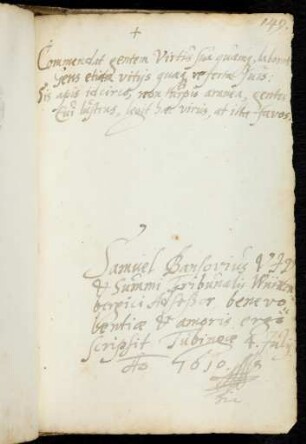 149.
+
Commendat gentem Virtus sua quamq, laborat
Gens etiam vitijs quaeq referta suis:
Sis apis idcirco, non turpis aranea, gentes
Cui lustras, legit haec virus, at illa favos.
Samuel
& Summi Tribunalis Wirtem
bergici Assessor, benevo
lentiae & amoris ergo
scripsit Tubingae 4. Julij
Ao 1610.